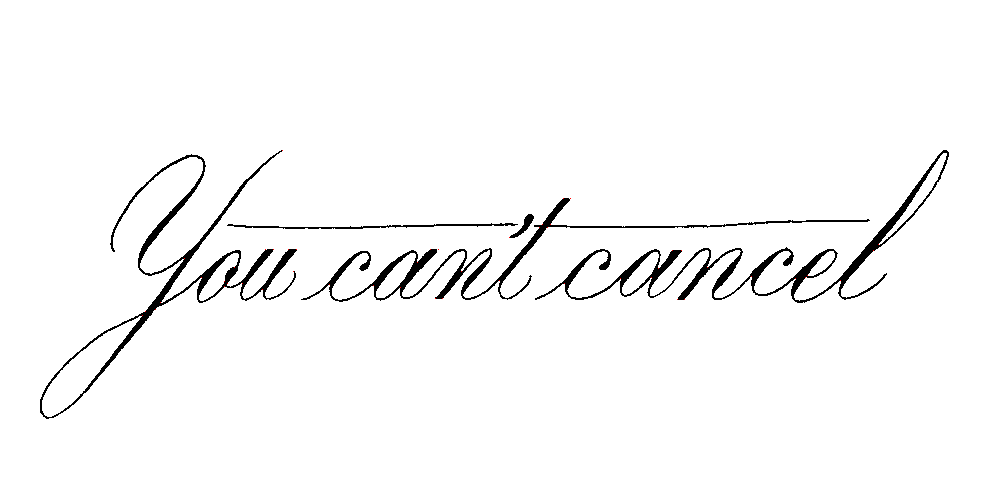 You can't cancel